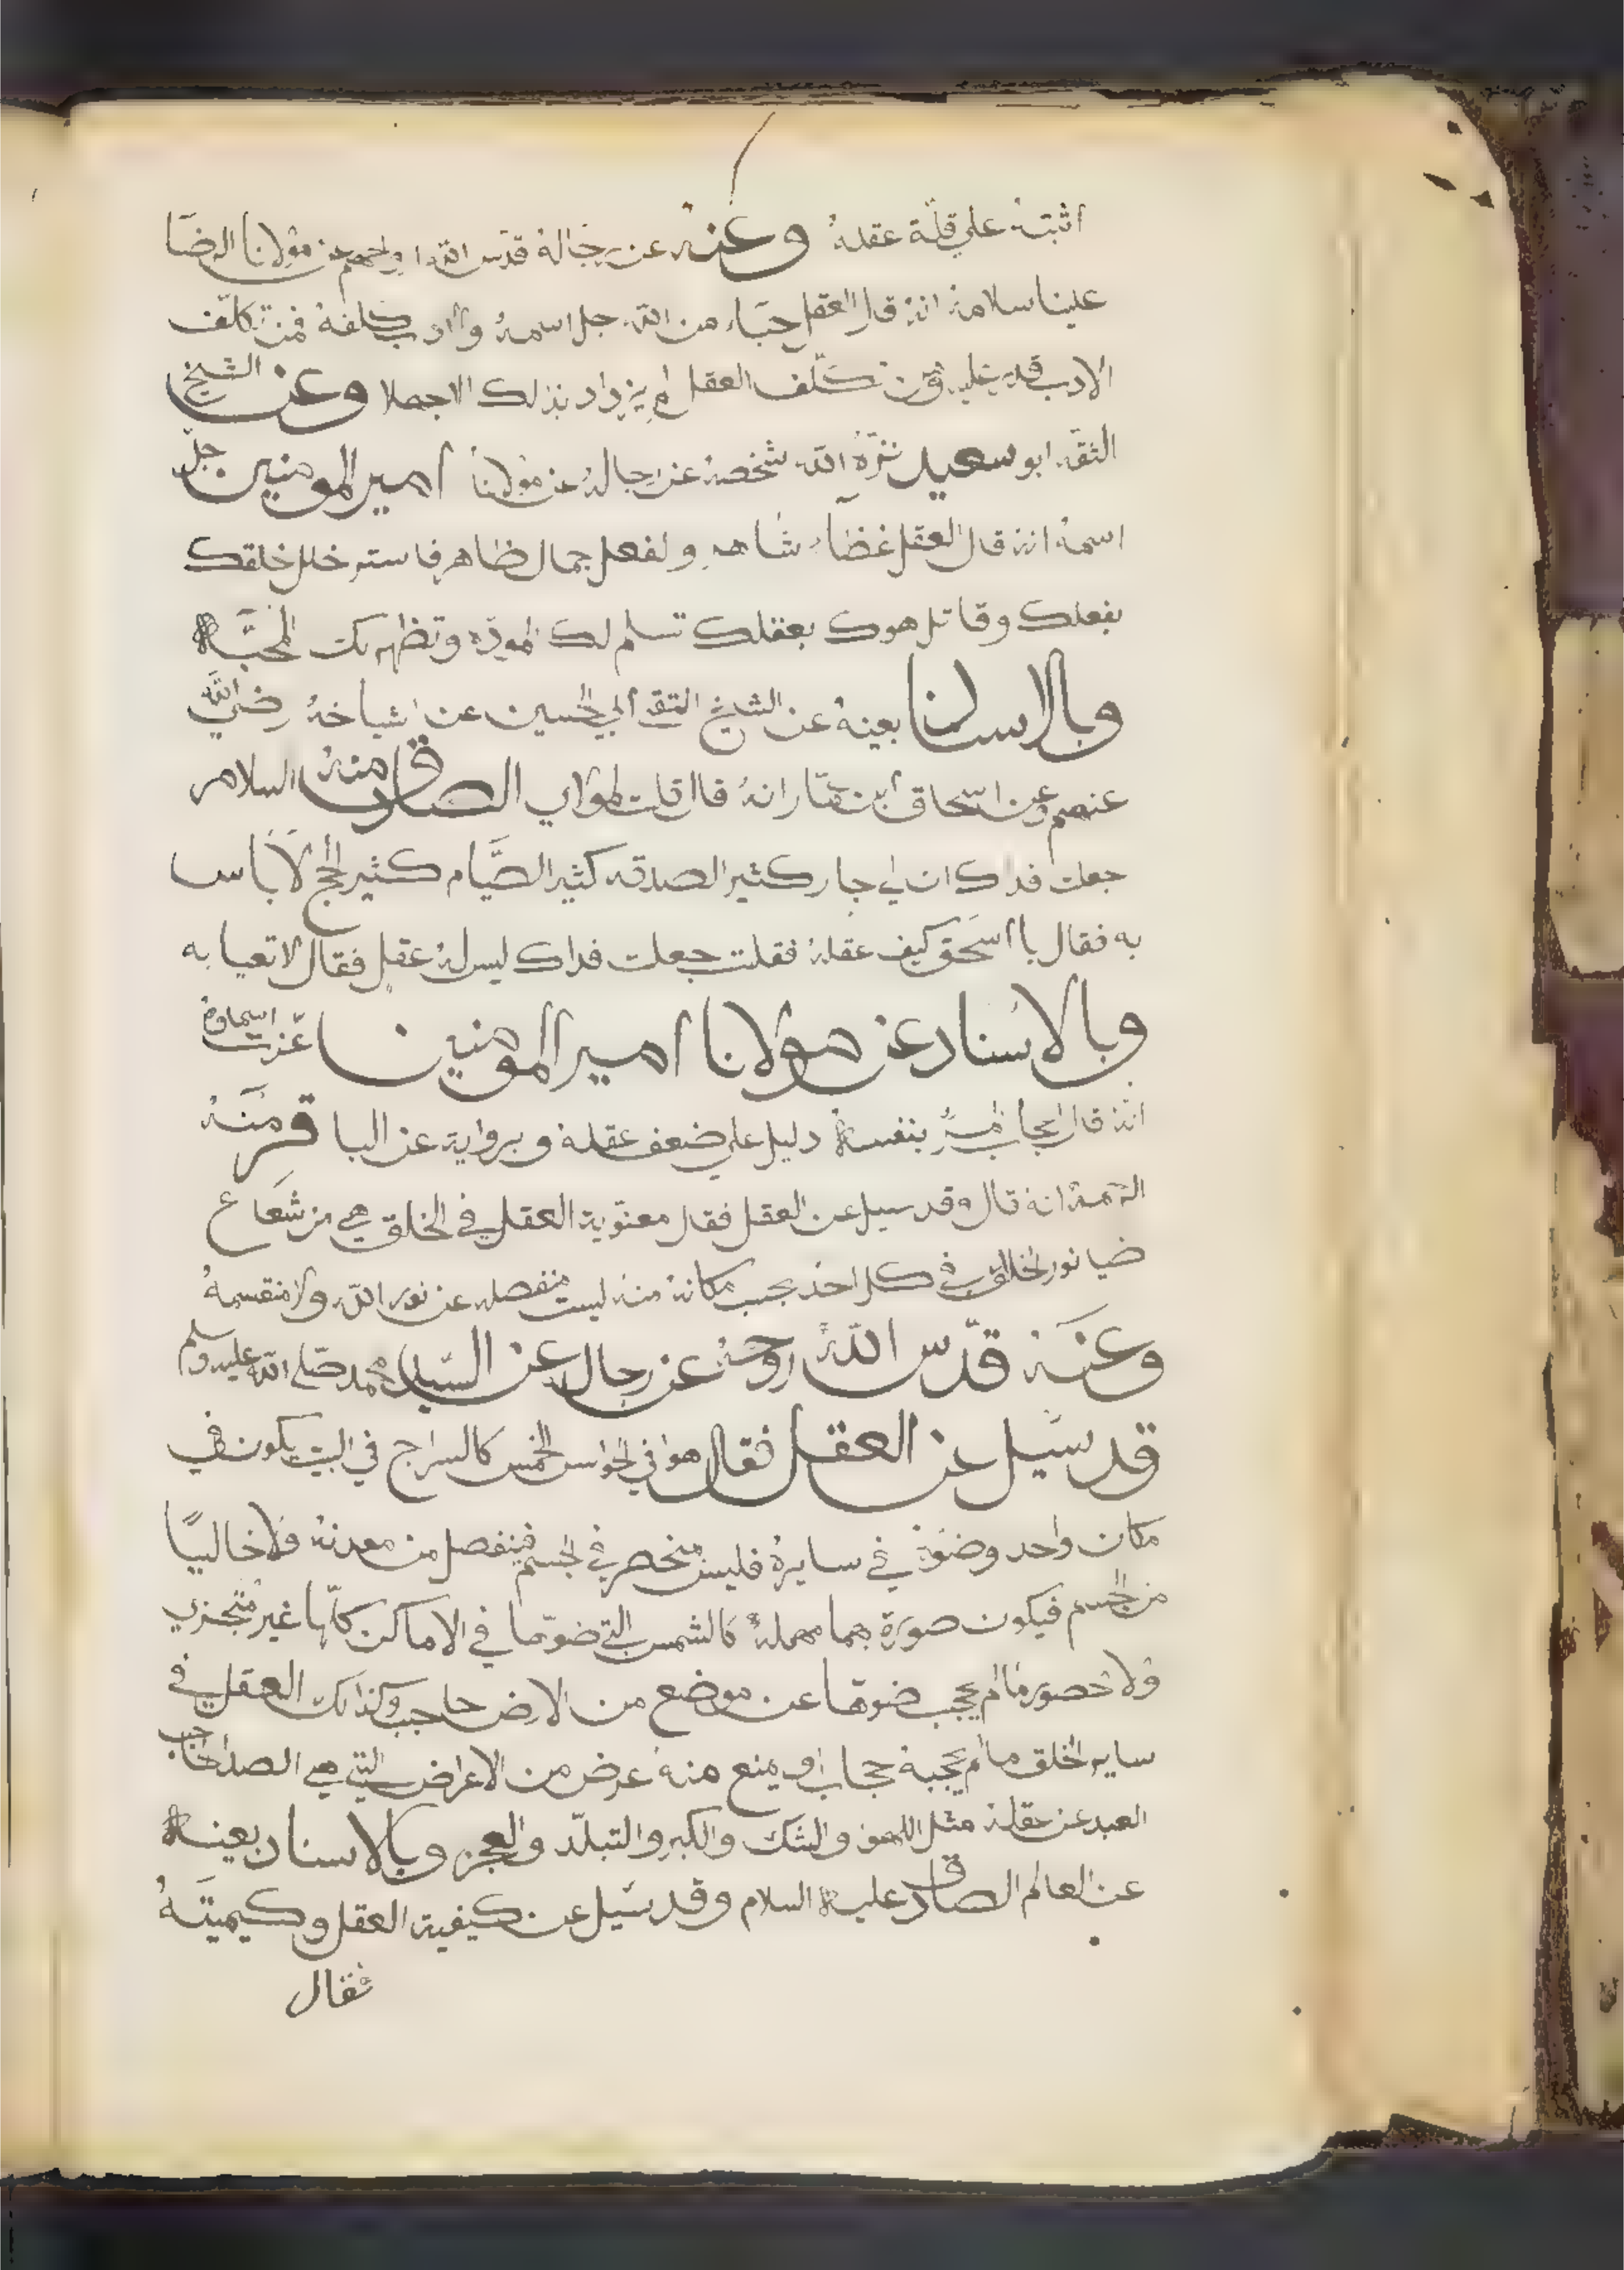 اثبتهُ علي قلّة عقلهُ وعنه عن رجَالهُ قدّس اللّه ارواحهم عن مَوْلانا الرضَا
علينا سلامهُ انهُ قال العقل حبَاء من اللّه جل اسمهُ والادب كلفهُ فمن تكلّف
الادب قدر عليه ومن تكلّف العقل لم يزداد بذلك الا جهلا وعن الشيخ
الثقه ابو سعيد نزّه اللّه شخصهُ عن رجالهُ عن مَوْلانا امير المومنين جلّ
اسمهُ انهُ قال العقل غطَآء شاهر ولفعل جمال ظاهر فاستر خلل خلقك
بفعلك وقاتل هوك بعقلك تسلم لك المودّه وتظهر لك المحبَّه
وبالاسنا بعينهُ عن الشيخ التقي ابي الحسين عن اشياخهُ رضي اللّه
عنهم وعن اسّحاق ابن عمّار انهُ قال قلت لمولاي الصادق منهُ السلام
جعلت فداك ان لي جار كثير الصدقه كثير الصَّيام كثير الحج لا باس
به فقال يا اسَحق كيف عقلهُ فقلت جعلت فداك ليس لهُ عقل فقال لا تعبا به
وبالاسناد عن مولانا امير المومنين عزّت اسماوهُ
انهُ قال اعجاب المرُ بنفسه دليل علي ضعف عقله وبرواية عن الباقر منَهُ
الرحمهُ انه قال وقد سيل عن العقل فقال معنَوية العقل في الخلق هي من شعَاع
ضيا نور الخالق في كل احد بحسب مكانهُ منهُ ليست منفصله عن نور اللّه ولا منقسمهُ
وعنَه قدّس اللّهُ روحهُ عن رجاله عن السّيد محمد صَلي اللّه عليه وسلم
قد سُيل عن العقل فقال هو في الحواس الخمس كالسراج في البيت يكون في
مكان واحد وضوَهُ في سايرهُ فليس منحصر في الجسم فينفصل من معدنهُ ولا خاليًا
من الجسم فيكون صورة بهما مهملهُ كالشمس التي ضوّها في الاماكن كلّها غير متَجزي
ولا محصور ما لم يحجب ضوها عن موضع من الارض حاجب وكذالك العقل في
ساير الخلق ما لم يحجبهُ حجاب او يمنع منهُ عرض من الاعراض التي هي الصداحاجب
العبد عن عقلهُ مثل اللهو والشك والكبر والتبلّد والعجز وبالاسناد بعينه
عن العالم الصادق عليه السلام وقد سُيل عن كيفية العقل وكيميتَهُ
فقال